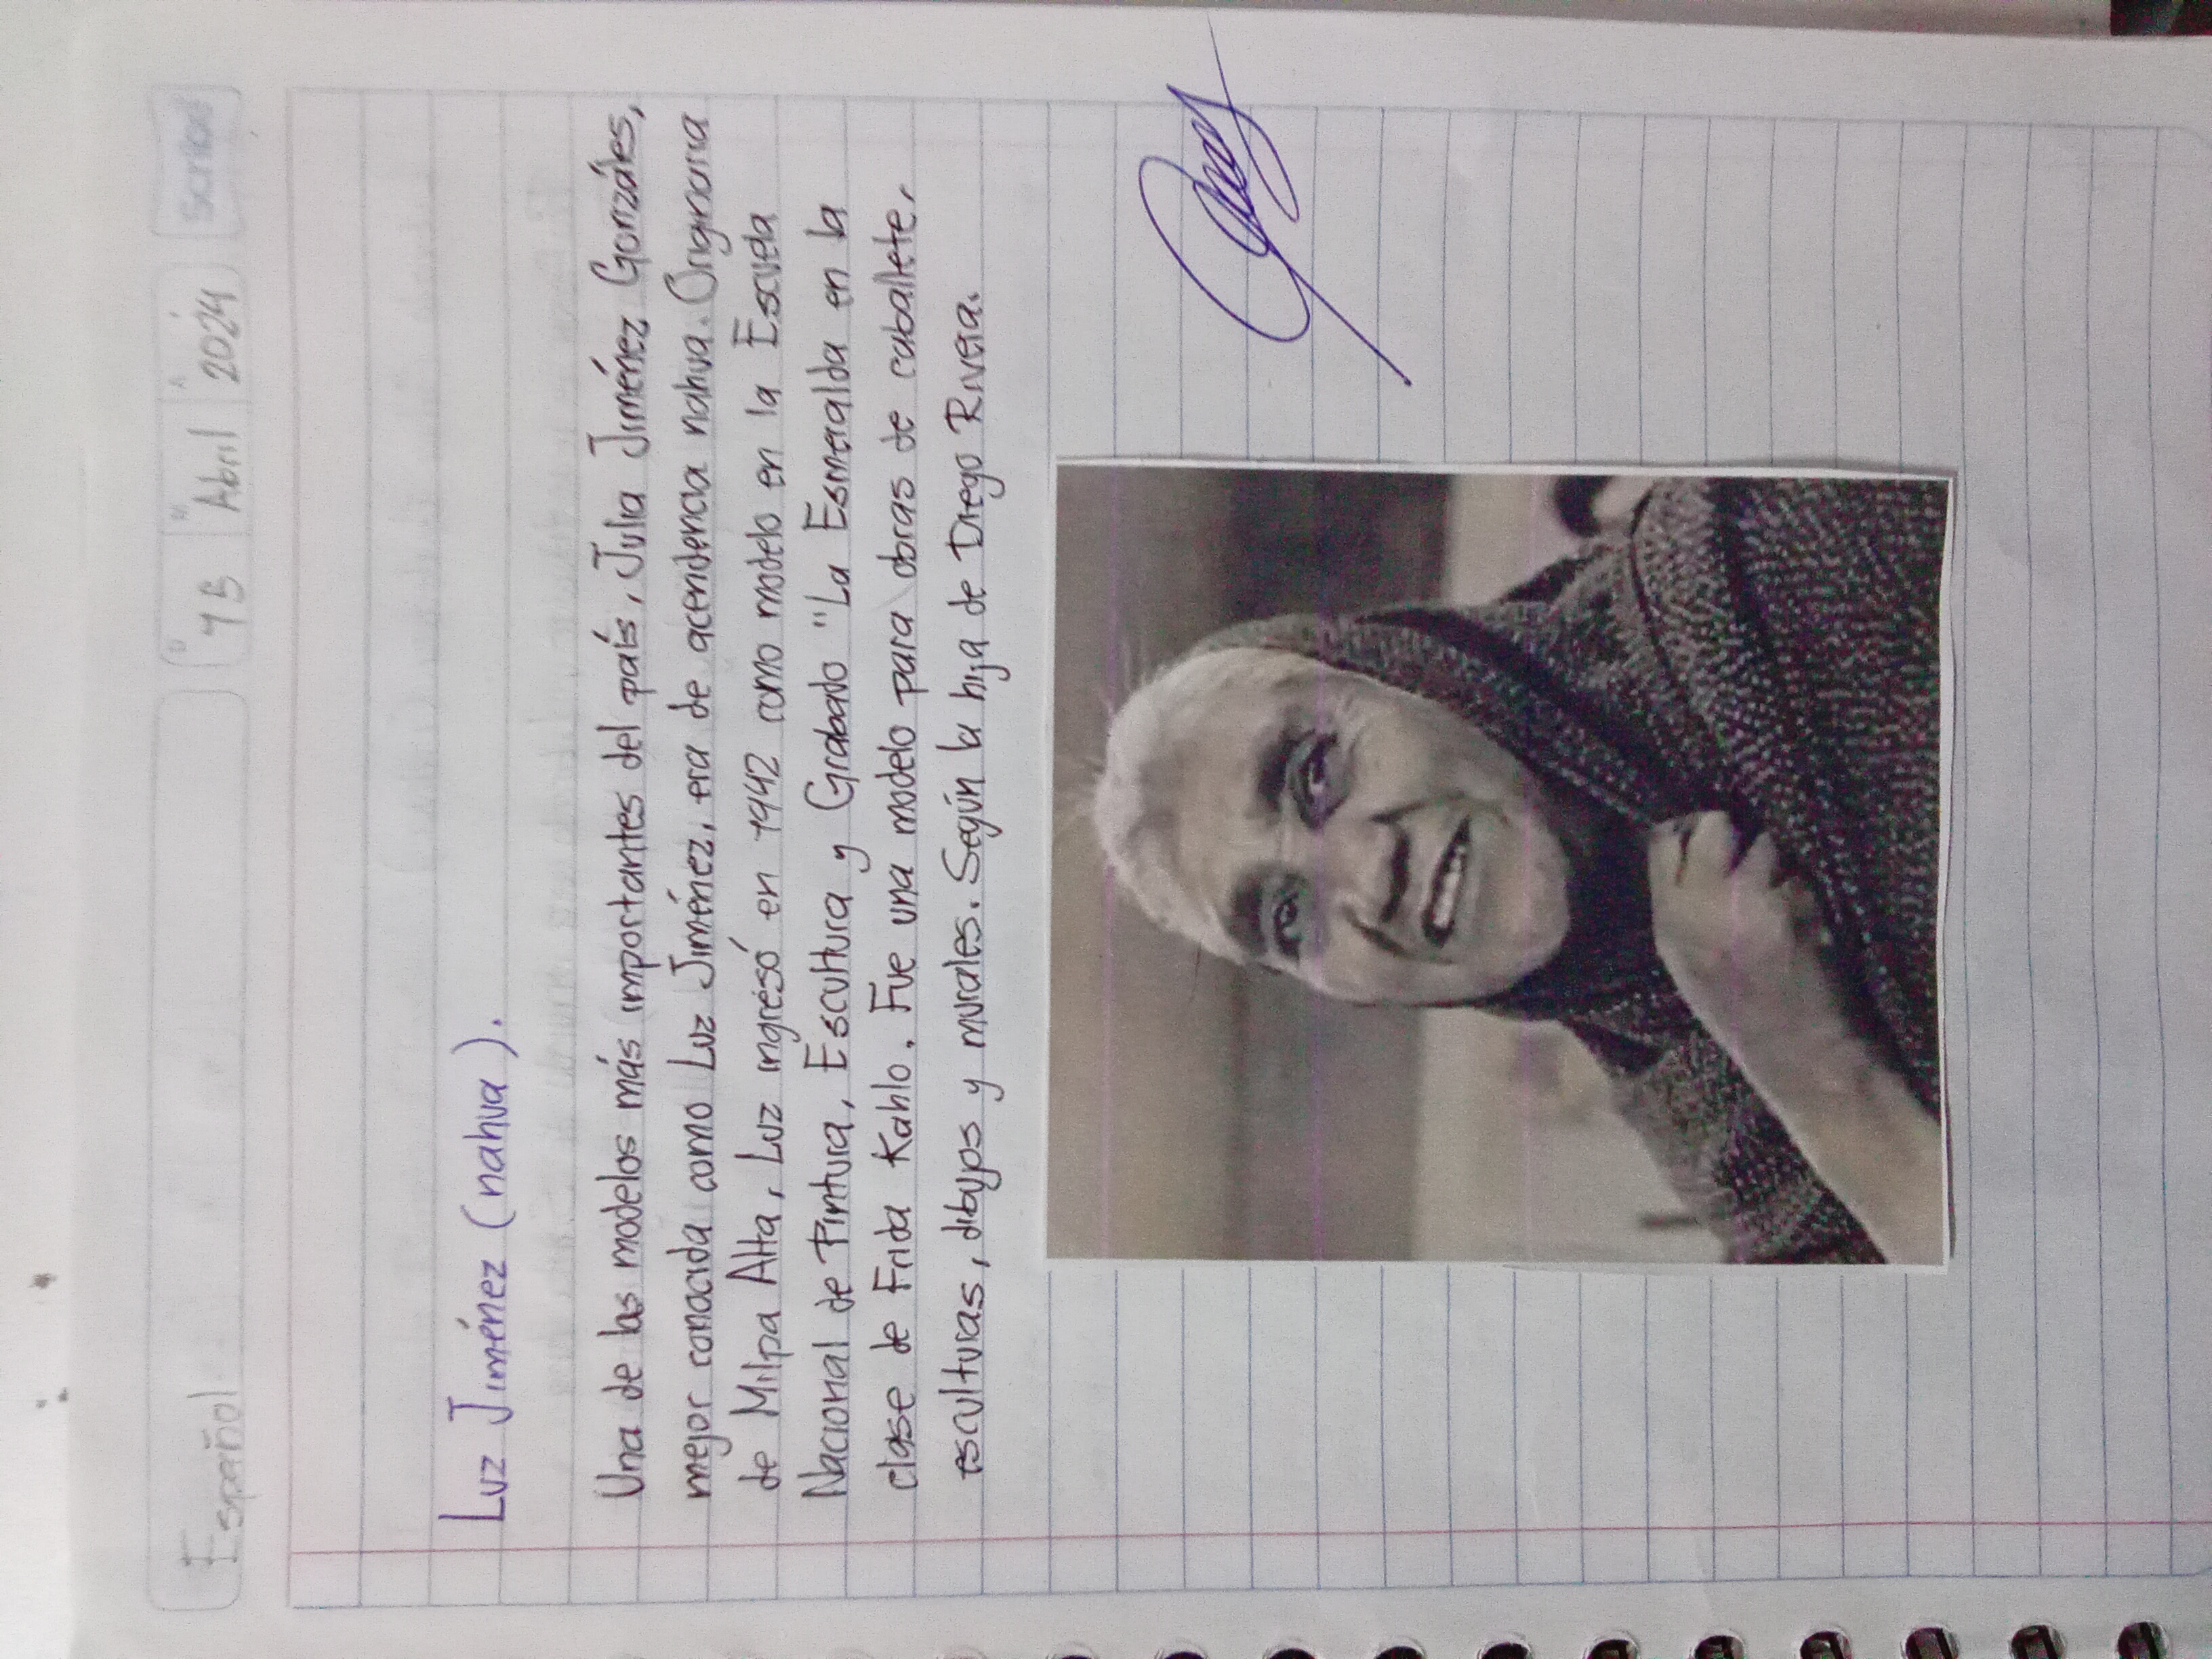 Español
Abril 2024
Scribe
Luz Jiménez (nahua).
Una de las modelos más importantes del país, Julia Jiménez Gonzáles,
mejor conocida como Luz Jiménez, era de acendencia nahua. Originaria
de Milpa Alta, Luz ingresó en 1942 como modelo en la Escuela
Nacional de Pintura, Escultura y Grabado "La Esmeralda en la
clase de Frida Kahlo. Fue una modelo para obras de caballete,
esculturas, dibujos y murales. Según la hija de Diego Rivera.